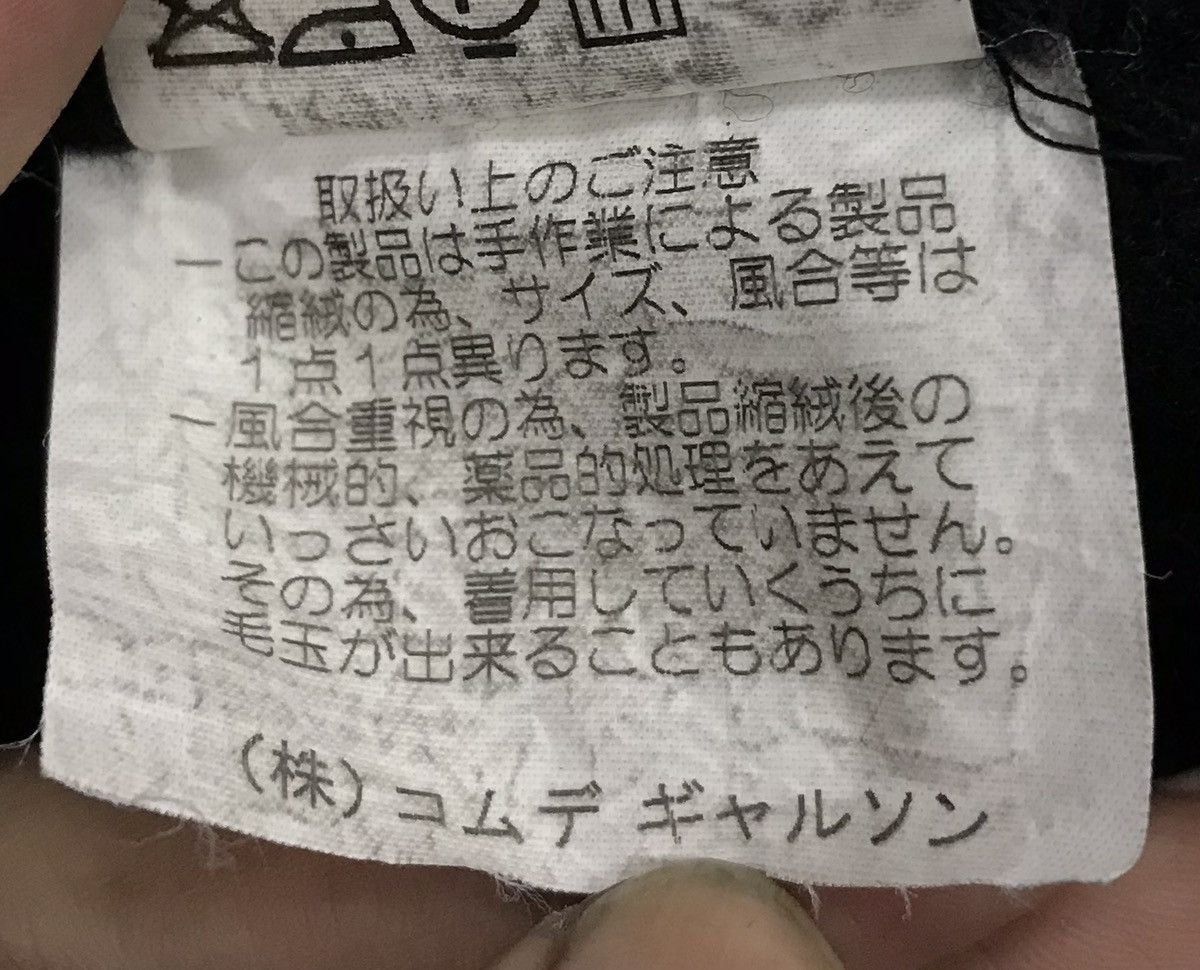 取扱い上のご注意
ーこの製品は手作業による製品
縮絨の為、サイズ、風合等は
1点1点異ります。
ー風合重視の為、製品縮絨後の
機械的、薬品的処理をあえて
いっさいおこなっていません。
その為、着用していくうちに
毛玉が出来ることもあります。
(株)コムデ ギャルソン